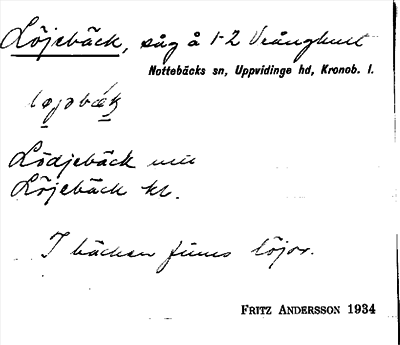 Löjebäck, såg å 1-2 Vrånghult
Nottebäcks sn, Uppvidinge hd, Kronob. l.
Lödjebäck
Löjebäck kt.
I bäcken finns löjor.
FRITZ ANDERSSON 1934